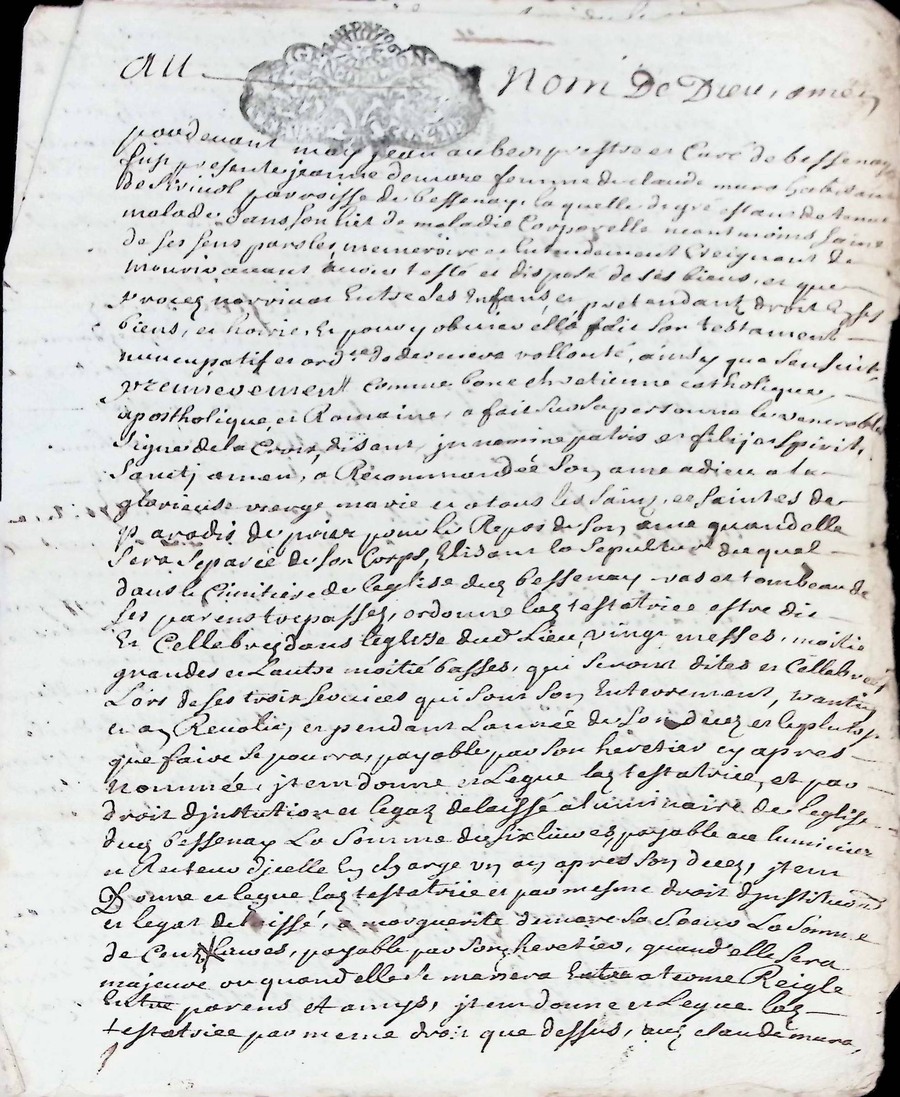 au nom De Dieu, amen
pardevant moy Jean aubert prestre et Curé de bessenay
fus presente jeanne demare femme de claude mura habitant
de parroisse de bessenay, laquelle de gré estant detenue
malade dans son lict de maladie Corporelle neantmoins saine
de ses sens parolles, memoire et Entendement Creignant de
mourir avant avoir testé et disposé de ses biens, et que
procez narrivat Entre ses Enfans et pretendantz droit a ses
biens, et hoirie, Et pour y obvier elle faic son testament
nuncupatif et ordre de derniere vollonté, ainsy que sensuit,
premierement comme bone chretienne catholique,
apostholique, et Romaine, a fait sur sa personne le venerable
signe de la Croix, disant, jn nomine patris et filij et Spirit,
Sanctj amen, a Recommandée Son ame a dieu a la
glorieuse vierge marie et a tous les saints, et saintes de
paradis de prier pour le Repos de Son ame quand elle
Sera separée de son Corps, Elisant la sepulture duquel
dans le Cimitiere de leglise dud bessenay vas et tombeau de
ses parens trepassez, ordonne lad testatrice estre dit
Et Cellebrez dans leglise dud Lieu, vingt messes, moitié
grandes et lautre moitié basses, qui seront dites et Cellebrées
Lors de ses trois services qui sont son Enterrement, quarantin
et an Revolu, et pendant Lannée de Son decez et le plutost
que faire se pourra, payable par son heretier cy apres
nommée, jtem donne et Legue lad testatrice, et par
droit djnstitution et legat delaissé a luminaire de leglise
dud bessenay La Somme de six livres, payable au luminier
et Recteur djcelle En charge un an apres son decez, jtem
Donne et legue lad testatrice et par mesme droit djnstitution
et legat delaissé, a marguerite demare sa soeur La Somme
de Cent livres, payable par son heretier, quand elle sera
majeure ou quand elle se mariera Entre a terme Reigle
Entre parens et amys, jtem donne et Legue lad
testatrice par meme droit que dessus, aud claude mura,